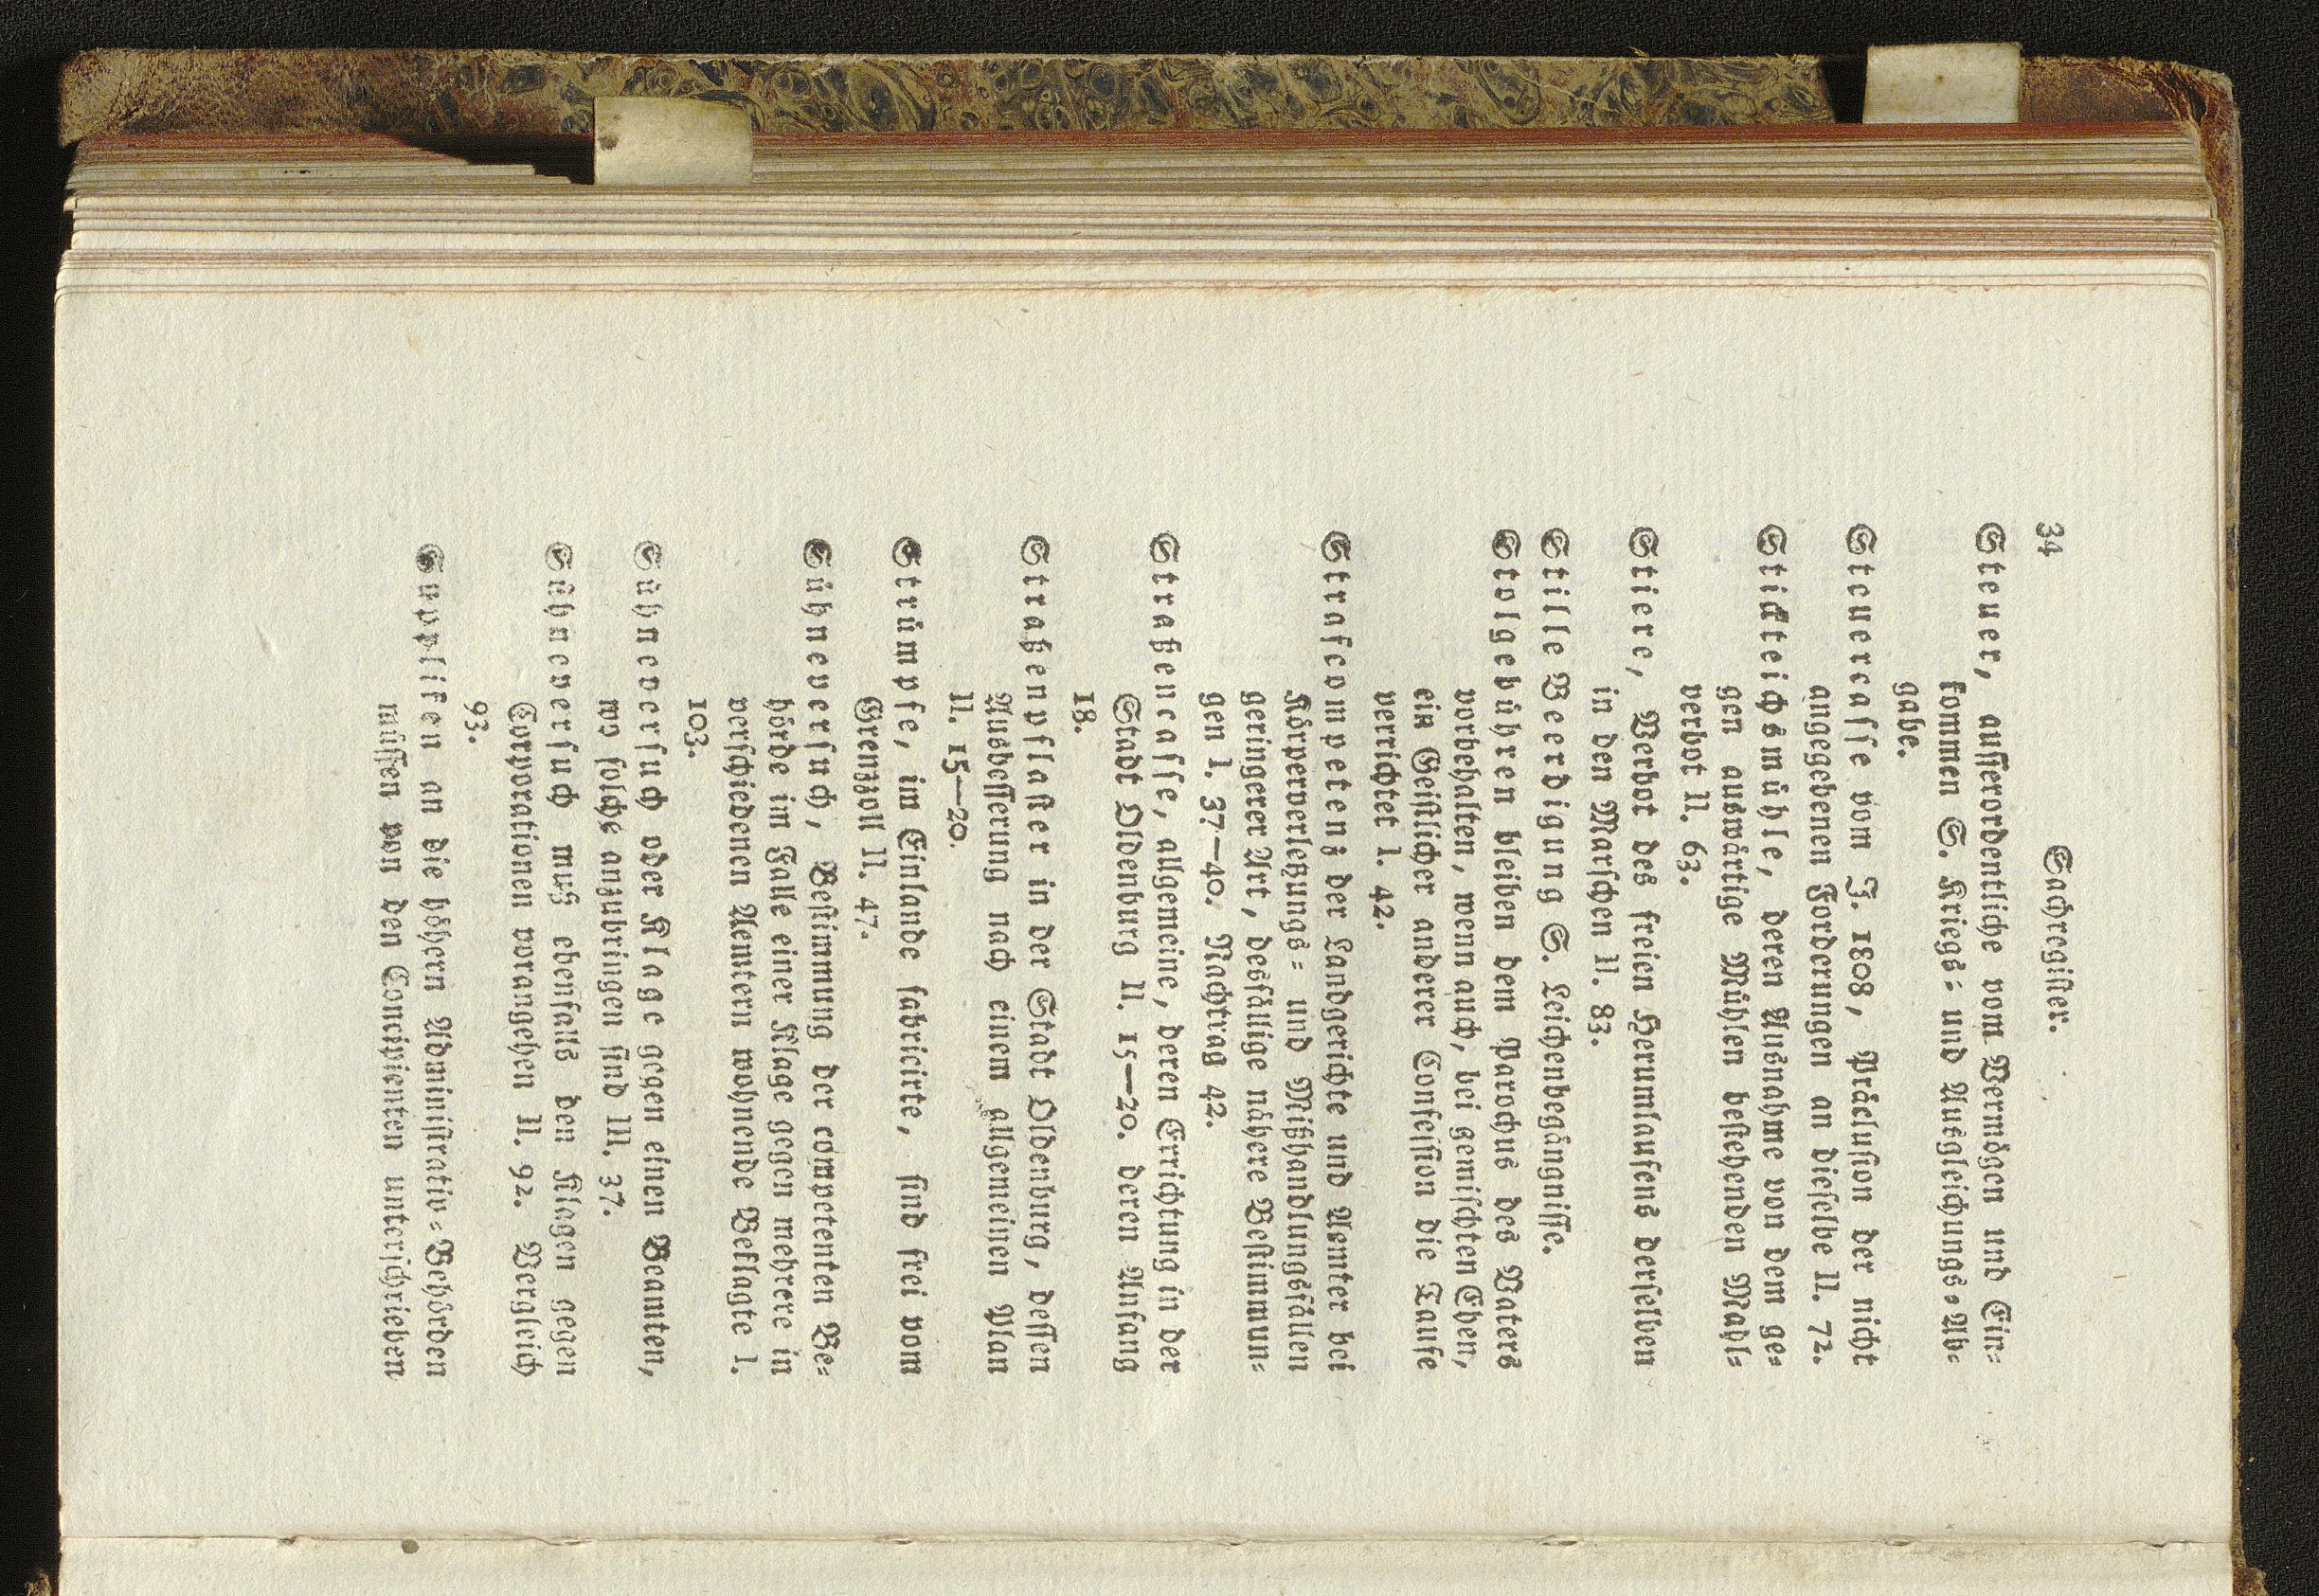 34 Sachregister.
Steuer, ausserordentliche vom Vermögen und Ein=
kommen S. Kriegs= und Ausgleichungs=Ab=
gabe.
Steuercasse vom J. 1808, Präclusion der nicht
angegebenen Forderungen an dieselbe II. 72.
Stickteichsmühle, deren Ausnahme von dem ge=
gen auswärtige Mühlen bestehenden Mahl=
verbot II. 63.
Stiere, Verbot des freien Herumlaufens derselben
in den Marschen II. 83.
Stille Beerdigung S. Leichenbegängnisse.
Stolgebühren bleiben dem Parochus des Vaters
vorbehalten, wenn auch, bei gemischten Ehen,
ein Geistlicher anderer Confession die Taufe
verrichtet I. 42.
Strafcompetenz der Landgerichte und Aemter bei
Körperverletzungs= und Mißhandlungsfällen
geringerer Art, desfällige nähere Bestimmun=
gen I. 37—40. Nachtrag 42.
Straßencasse, allgemeine, deren Errichtung in der
Stadt Oldenburg II. 15—20. deren Anfang
18.
Straßenpflaster in der Stadt Oldenburg, dessen
Ausbesserung nach einem allgemeinen Plan
II. 15—20.
Strümpfe, im Einlande fabricirte, sind frei vom
Grenzzoll II. 47.
Sühneversuch, Bestimmung der competenten Be=
hörde im Falle einer Klage gegen mehrere in
verschiedenen Aemtern wohnende Beklagte I.
103.
Sühneversuch oder Klage gegen einen Beamten,
wo solche anzubringen sind III. 37.
Sühneversuch muß ebenfalls den Klagen gegen
Corporationen vorangehen II. 92. Vergleich
93.
Suppliken an die höhern Administrativ=Behörden
müssen von den Concipienten unterschrieben